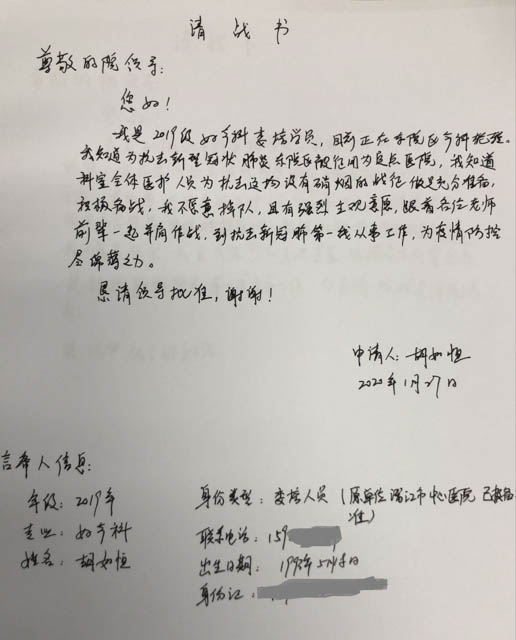 请战书
尊敬的院领导：
您好！
我是2019级妇产科委培学员，目前正在东院区产科轮转。
我知道为抗击新型冠状肺炎东院区被征用为定点医院，我知道
科室全体医护人员为抗击这场没有硝烟的战役做足充分准备，
积极备战，我不愿意掉队，且有强烈主观意愿，跟着各位老师
前辈一起并肩作战，到抗击新冠肺第一线从事工作，为疫情防控
尽绵薄之力。
恳请领导批准，谢谢！
申请人：胡如恒
2020年1月27日
人信息：
年级：2019年
身份类型：委培人员（原单位潜江市中心医院 已被
准）
专业：妇产科
联系电话：159
姓名：胡如恒
出生日期：199年5月日
身份证：